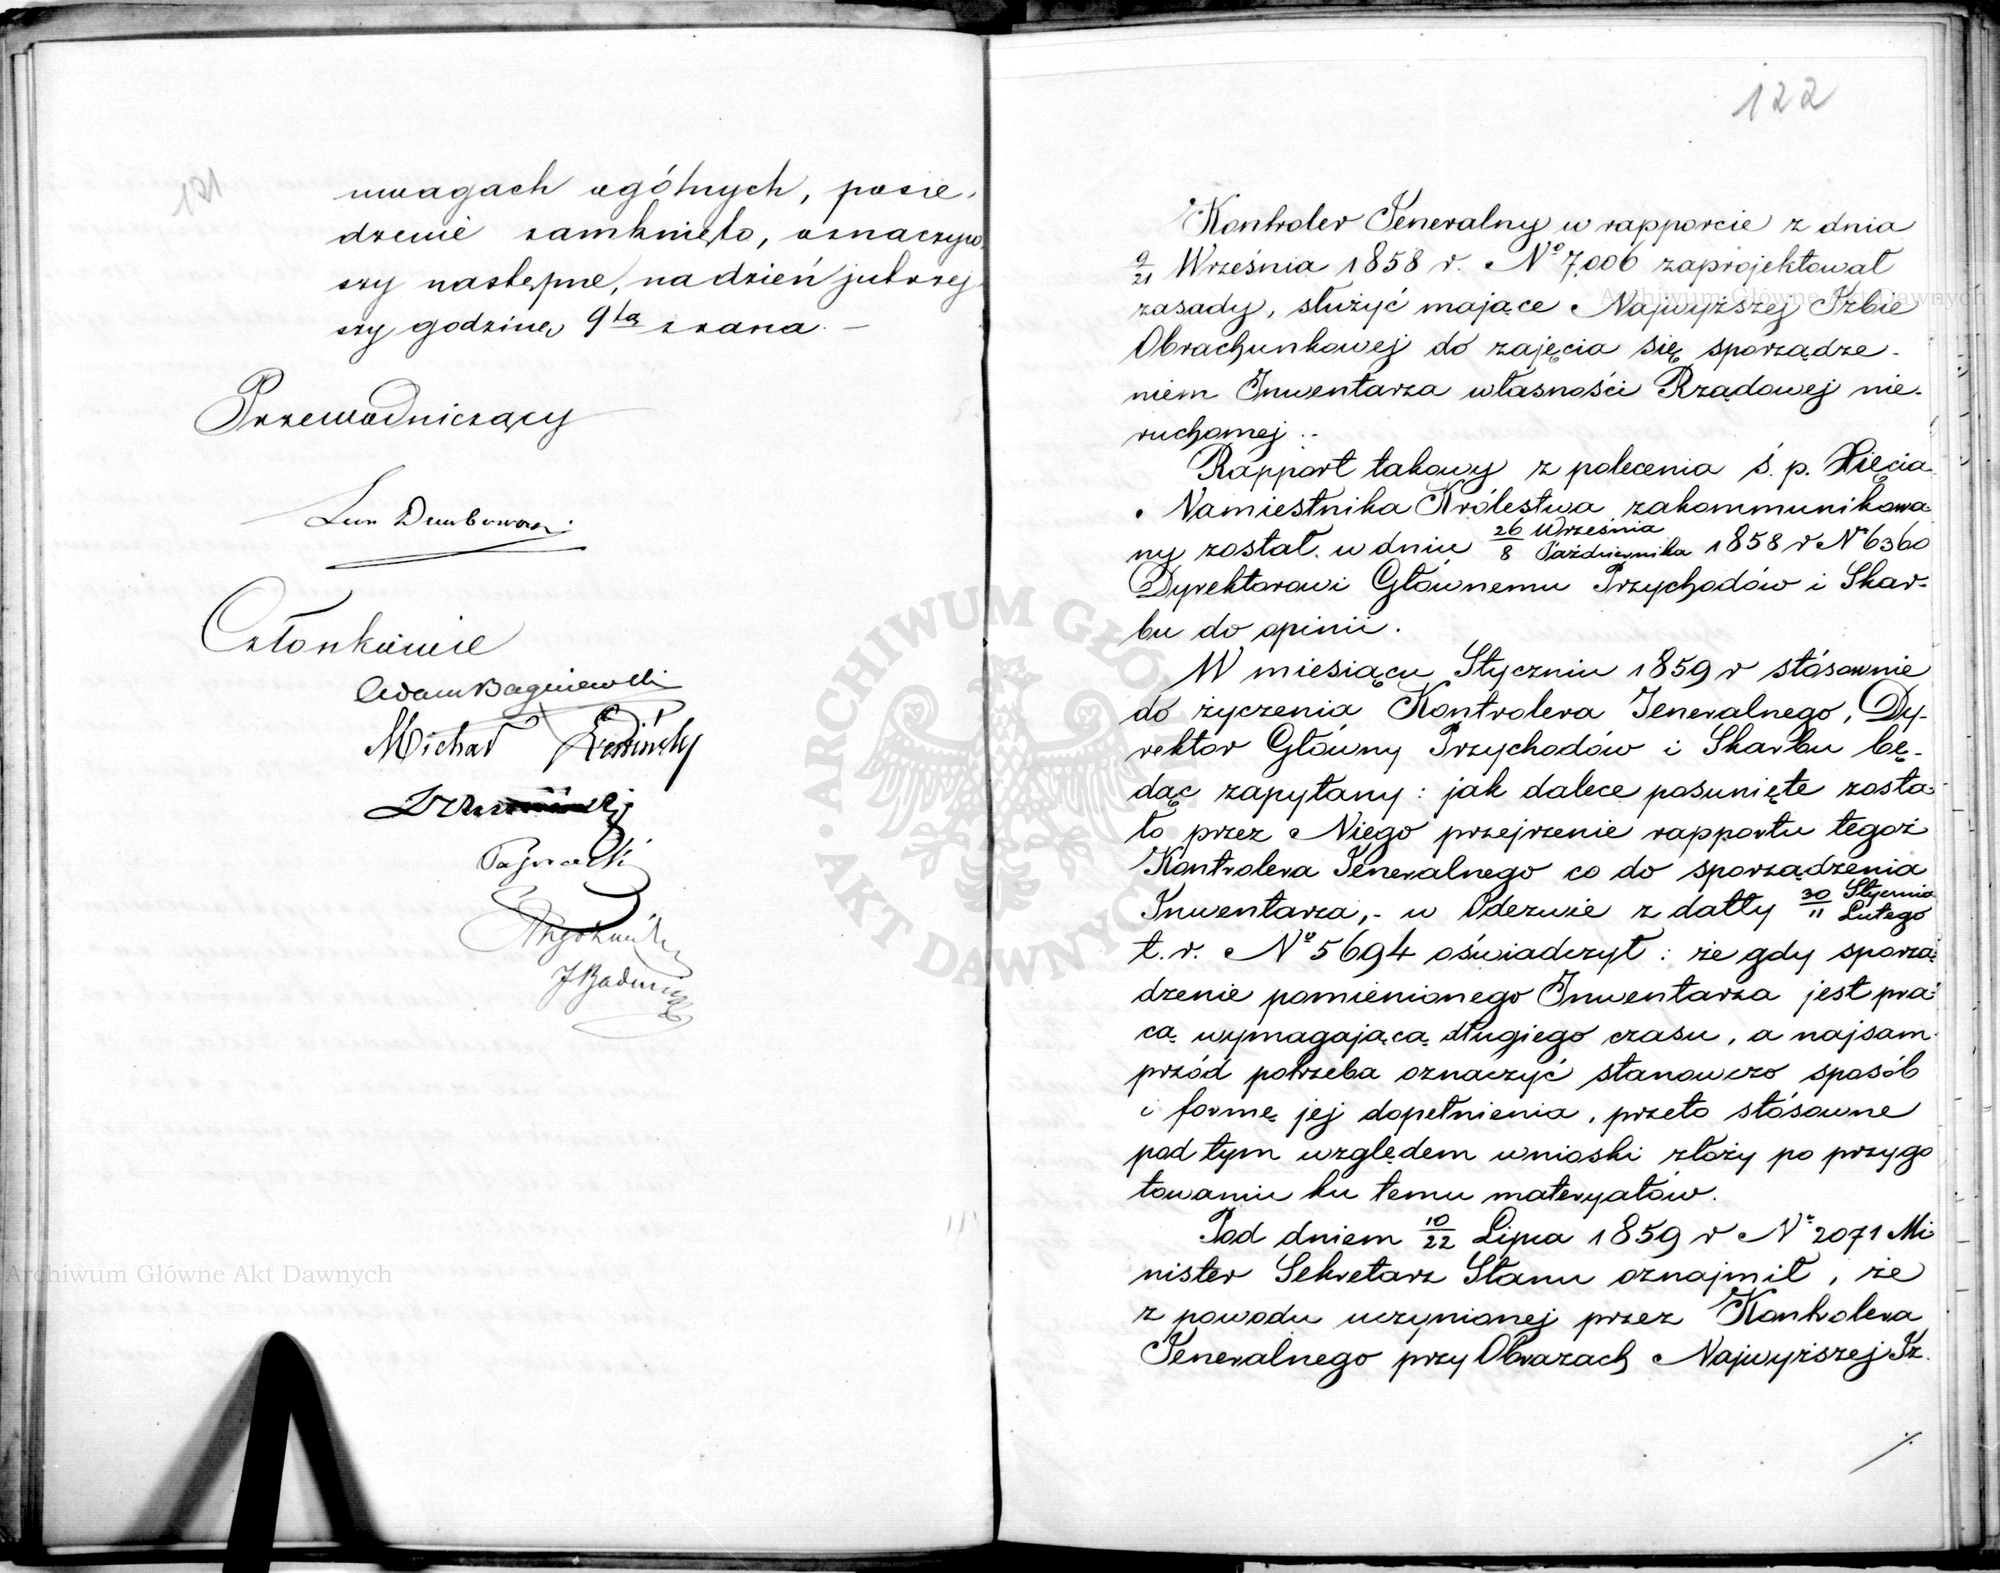 121
uwagach ogólnych, posie-
dzenie zamknięto, oznaczyw-
szy następne, na dzień jutrzej-
szy godzinę 9tą z rana. –
Przewodniczący
Członkowie
Michał
122
Kontroler Jeneralny w rapporcie z dnia
9/21 Września 1858 r. No 7,006 zaprojektował
zasady, służyć mające Najwyższej Izbie
Obrachunkowej do zajęcia się sporządze-
niem Inwentarza własności Rządowej nie-
ruchomej.
Rapport takowy z polecenia ś. p. Xięcia
Namiestnika Królestwa zakommunikowa-
ny został w dniu 26 Września/8 Października 1858 r No 6360
Dyrektorowi Głównemu Przychodów i Skar-
bu do opinii.
W miesiącu Styczniu 1859 r stósownie
do życzenia Kontrolera Jeneralnego, Dy-
rektor Główny Przychodów i Skarbu bę-
dąc zapytany: jak dalece posunięte zosta-
ło przez Niego przejrzenie rapportu tegoż
Kontrolera Jeneralnego co do sporządzenia
Inwentarza,- w Odezwie z datty 30 Stycznia/11 Lutego
t. r. No 5694 oświadczył: że gdy sporzą-
dzenie pomienionego Inwentarza jest pra-
cą wymagającą długiego czasu, a najsam-
przód potrzeba oznaczyć stanowczo sposób
i formę jej dopełnienia, przeto stósowne
pod tym względem wnioski złoży po przygo
towaniu ku temu materyałów.
Pod dniem 10/22 Lipca 1859 r No 2071 Mi
nister Sekretarz Stanu oznajmił, że
z powodu uczynionej przez Kontrolera
Jeneralnego przy Obrazach Najwyższej Iz-
./.
ARCHIWUM GŁÓWNE AKT DAWNYCH
Archiwum Główne Akt Dawnych
Archiwum Główne Akt Dawnych